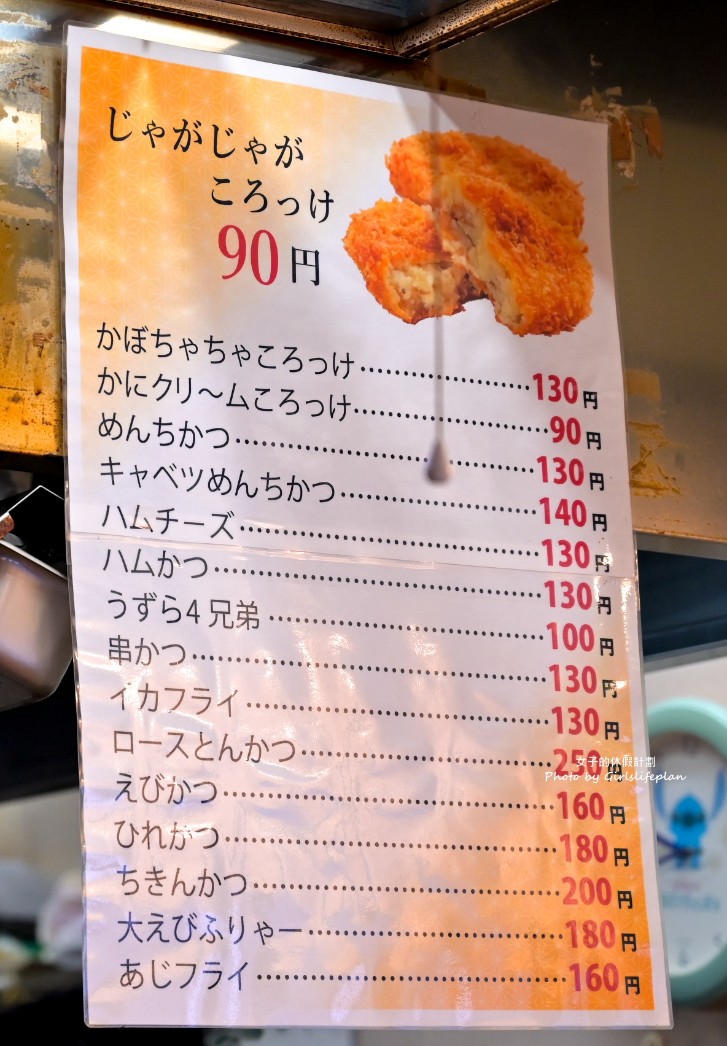 じゃがじゃが
ころっけ
90円
かぼちゃちゃころっけ……………………130円
かにクリ〜ムころっけ……………………90円
めんちかつ……………………130円
キャベツめんちかつ……………………140円
ハムチーズ……………………130円
ハムかつ……………………130円
うずら4兄弟……………………100円
串かつ……………………130円
イカフライ……………………130円
ロースとんかつ……………………250円
えびかつ……………………160円
ひれかつ……………………180円
ちきんかつ……………………200円
大えびふりゃー……………………180円
あじフライ……………………160円
女子的休假計劃
Photo by Girlslifeplan